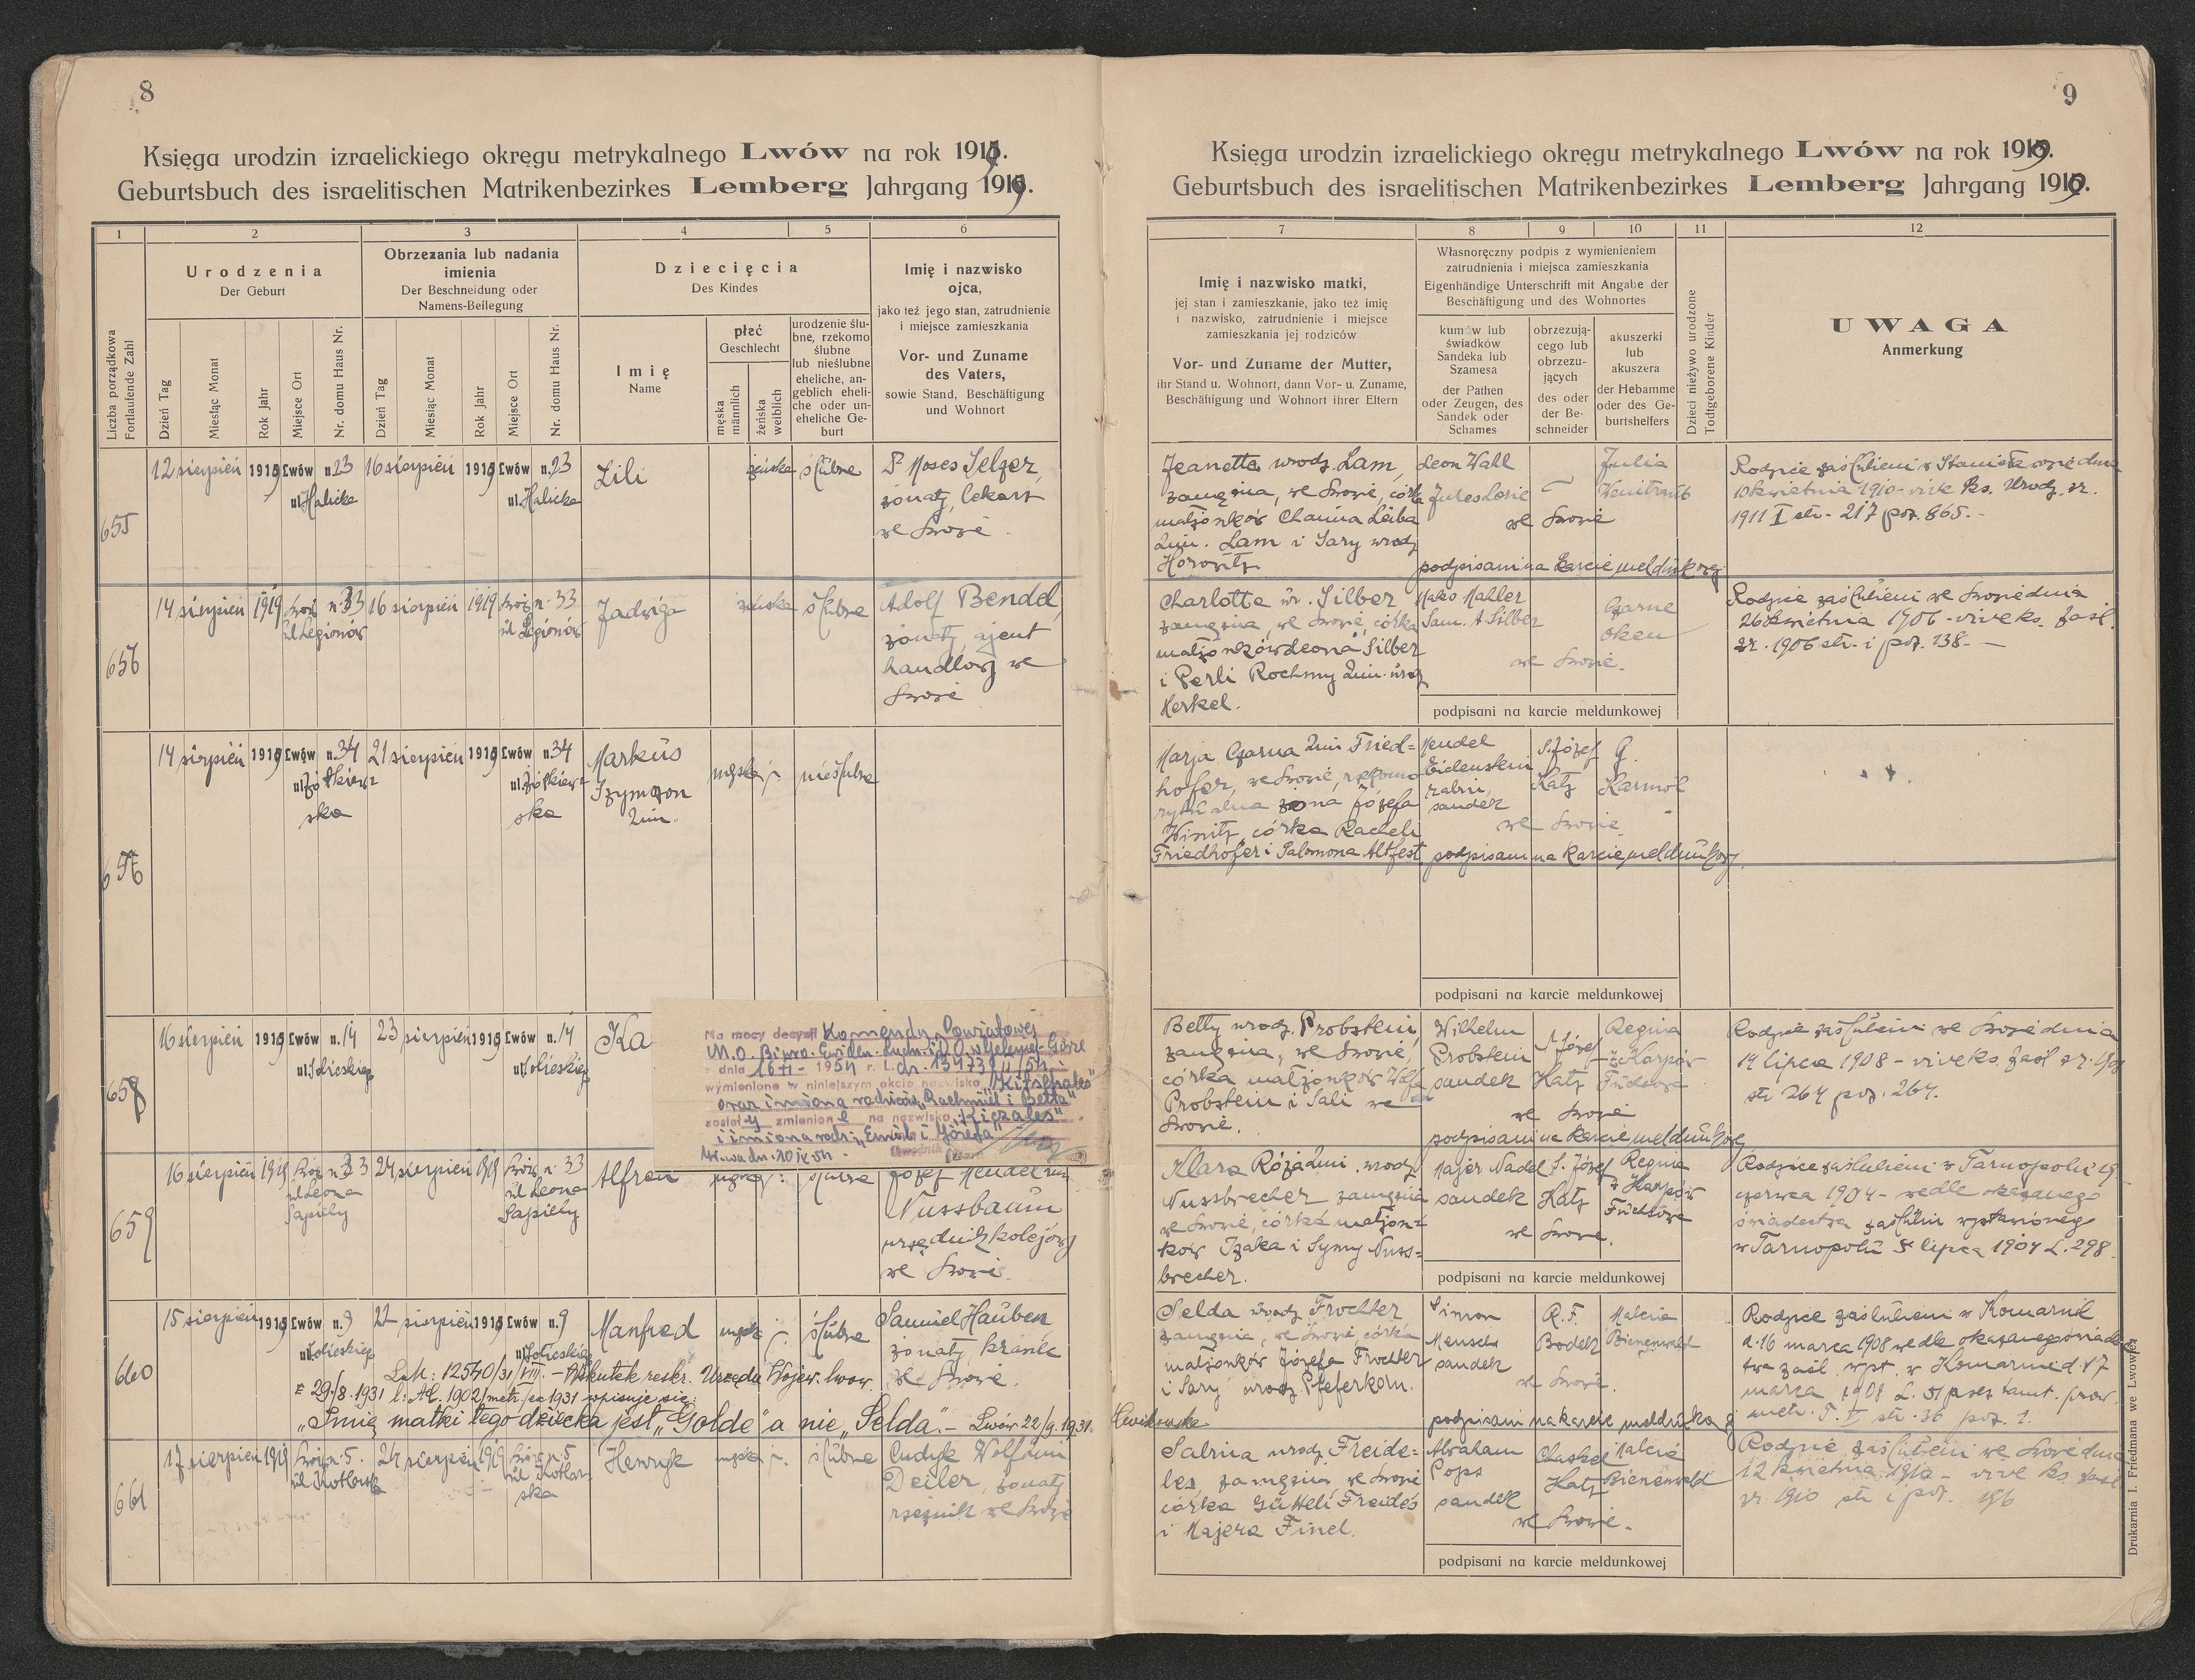 8
Księga urodzin izraelickiego okręgu metrykalnego Lwów na rok 1919.
Geburtsbuch des israelitischen Matrikenbezirkes Lemberg Jahrgang 1919.
1 2 3 4 5 6
Liczba porządkowa
Fortlaufende Zahl
Urodzenia
Der Geburt
Dzień Tag
Miesiąc Monat
Rok Jahr
Miejsce Ort
Nr. domu Haus Nr.
Obrzezania lub nadania
imienia
Der Beschneidung oder
Namens-Beilegung
Dzień Tag
Miesiąc Monat
Rok Jahr
Miejsce Ort
Nr. domu Haus Nr.
Dziecięcia
Des Kindes
Imię
Name
płeć
Geschlecht
męska
männlich
żeńska
weiblich
urodzenie ślu-
bne, rzekomo
ślubne
lub nieślubne
eheliche, an-
geblich eheli-
che oder un-
eheliche Ge-
burt
Imię i nazwisko
ojca,
jako też jego stan, zatrudnienie
i miejsce zamieszkania
Vor- und Zuname
des Vaters,
sowie Stand, Beschäftigung
und Wohnort
655
12 sierpień 1919 Lwów n.23
ul Halicka
16 sierpień 1919 Lwów n.23
ul. Halicka
Lili
żeńska ślubne
Moses Selzer,
żonaty, lekarz
we Lwowie.
656
14 sierpień 1919 Lwów n. 33
ul Legionów
16 sierpień 1919 Lwów n. 33
ul Legionów
Jadwiga
żeńska ślubne
Adolf Bendel,
żonaty, ajent
handlowy we
Lwowie
14 sierpień 1919 Lwów n.34
ul. Żółkiew-
ska
21 sierpień 1919 Lwów n.34
ul. Żółkiew-
ska
Markus
Szymon
2im.
męska nieślubne
658
16 sierpień 1919 Lwów n.14
ul Sobieskiego
23 sierpień 1919 Lwów n.14
ul Sobieskiego
Ka
Na mocy decyzji Komendy Powiatowej
M.O. Biuro Ewiden. Ludn. i D.O. w Jeleniej-Górze
z dnia 1954 r. L.
wymienione w niniejszym akcie nazwisko „Kitschales"
oraz imiona rodziców „Rachmiel i Betta"
zostały zmienione na nazwisko „Kiczales"
i imiona rodz. „Emil i
659
16 sierpień 1919 Lwów n. 33
ul Leona
Sapiehy
24 sierpień 1919 Lwów n. 33
ul Leona
Sapiehy
Alfred
męska ślubne
Józef Mendel 2im
Nussbaum
urzędnik kolejowy
we Lwowie.
660
15 sierpień 1919 Lwów n.9
ul Sobieskiego
22 sierpień 1919 Lwów n.9
ul Sobieskiego
Manfred
męska ślubne
Samuel Hauben,
żonaty, krawiec
we Lwowie.
L.M: 12540/31/VIII. – Wskutek reskr. Urzędu Wojew. lwow.
z 29./8. 1931 l: AC. 1902/metr./ex 1931 wpisuje się:
„Imię matki tego dziecka jest „Golde" a nie „Selda". – Lwów 22/9. 1931.
661
17 sierpień 1919 Lwów n. 5.
ul Kotlarska
24 sierpień 1919 Lwów n. 5
ul Kotlar-
ska
Henryk
męska ślubne
Cudyk Wolf 2im
Deiler, żonaty
rzeźnik we Lwowie
9
Księga urodzin izraelickiego okręgu metrykalnego Lwów na rok 1919.
Geburtsbuch des israelitischen Matrikenbezirkes Lemberg Jahrgang 1919.
7 8 9 10 11 12
Imię i nazwisko matki,
jej stan i zamieszkanie, jako też imię
i nazwisko, zatrudnienie i miejsce
zamieszkania jej rodziców
Vor- und Zuname der Mutter,
ihr Stand u. Wohnort, dann Vor- u. Zuname,
Beschäftigung und Wohnort ihrer Eltern
Własnoręczny podpis z wymienieniem
zatrudnienia i miejsca zamieszkania
Eigenhändige Unterschrift mit Angabe der
Beschäftigung und des Wohnortes
kumów lub
świadków
Sandeka lub
Szamesa
der Pathen
oder Zeugen, des
Sandek oder
Schames
obrzezują-
cego lub
obrzezu-
jących
des oder
der Be-
schneider
akuszerki
lub
akuszera
der Hebamme
oder des Ge-
burtshelfers
Dzieci nieżywo urodzone
Todtgeborene Kinder
UWAGA
Anmerkung
Jeanette urodz. Lam,
zamężna, we Lwowie, córka
małżonków Chaima Leiba
2im. Lam i Sary urodz
Horowitz.
Leon Wahl
Julia
we Lwowie
podpisani na karcie meldunkowej
Rodzice zaślubieni w Stanisławowie dnia
10 kwietnia 1910 – vide ks. Urodz. zr.
1911 I str. 217 poz. 865. –
Charlotte ur. Silber
zamężna we Lwowie, córka
małżonków Leona Silber
i Perli Rochmy 2im. urodz
Kerkel.
Mako Mahler
Sam. A Silber
Czarne
oken
we Lwowie.
podpisani na karcie meldunkowej
Rodzice zaślubieni we Lwowie dnia
26 kwietnia 1906 – vide ks. zaśl.
zr. 1906 str. i poz. 138. –
Marja Czarna 2im Fried-
hofer, we Lwowie, rzekomo
rytualna żona Józefa
córka Racheli
Friedhofer i Salomona Altfest
Mendel
Eidenstein
rabin,
sandek
S. Józef
Katz
G.
Karmol
we Lwowie.
podpisani na karcie meldunkowej
podpisani na karcie meldunkowej
Betty urodz. Probstein,
zamężna, we Lwowie,
córka małżonków Wolfa
Probstein i Sali we
Lwowie.
Wilhelm
Probstein
sandek
S. Józef
Katz
Regina
z Karpów
Fuchsowa
we Lwowie
podpisani na karcie meldunkowej
Rodzice zaślubieni we Lwowie dnia
19 lipca 1908 – vide ks. zaśl zr. 1908
str 264 poz. 264.
Klara Róża 2im. urodz
Nussbrecher zamężna
we Lwowie, córka małżon-
ków Izaka i Symy Nuss-
brecher.
Majer Nadel
sandek
S. Józef
Katz
Regina
z Karpów
Fuchsowa
we Lwowie.
podpisani na karcie meldunkowej
Rodzice zaślubieni w Tarnopolu 19
czerwca 1904 – wedle okazanego
świadectwa zaślubin wystawionego
w Tarnopolu 5 lipca 1904 L. 298.
Selda urodz Frochter
zamężna, we Lwowie, córka
małżonków Józefa Frochter
i Sary urodz Pfeferkorn.
Simon
Mensch
sandek
R. F.
Bodek
Malcia
Bienenwald
we Lwowie.
podpisani na karcie meldunkowej
Rodzice zaślubieni w Komarnie
d. 16 marca 1908 wedle okazanego świadec
twa zaśl. wyst. w Komarnie d. 17
marca 1908 L. 51 przez tamt. prow.
metr. T. I str. 36 poz. 2.
Salcia urodz. Freide-
les, zamężna we Lwowie
córka Gütteli Freides
i Majera Finel.
Abraham
Pops
sandek
Chaskel
Katz
Malcie
Bienenwald
we Lwowie.
podpisani na karcie meldunkowej
Rodzice zaślubieni we Lwowie dnia
12 kwietnia 1910 – vide ks. zaśl.
zr. 1910 str i poz. 196
Drukarnia I. Friedmana we Lwowie